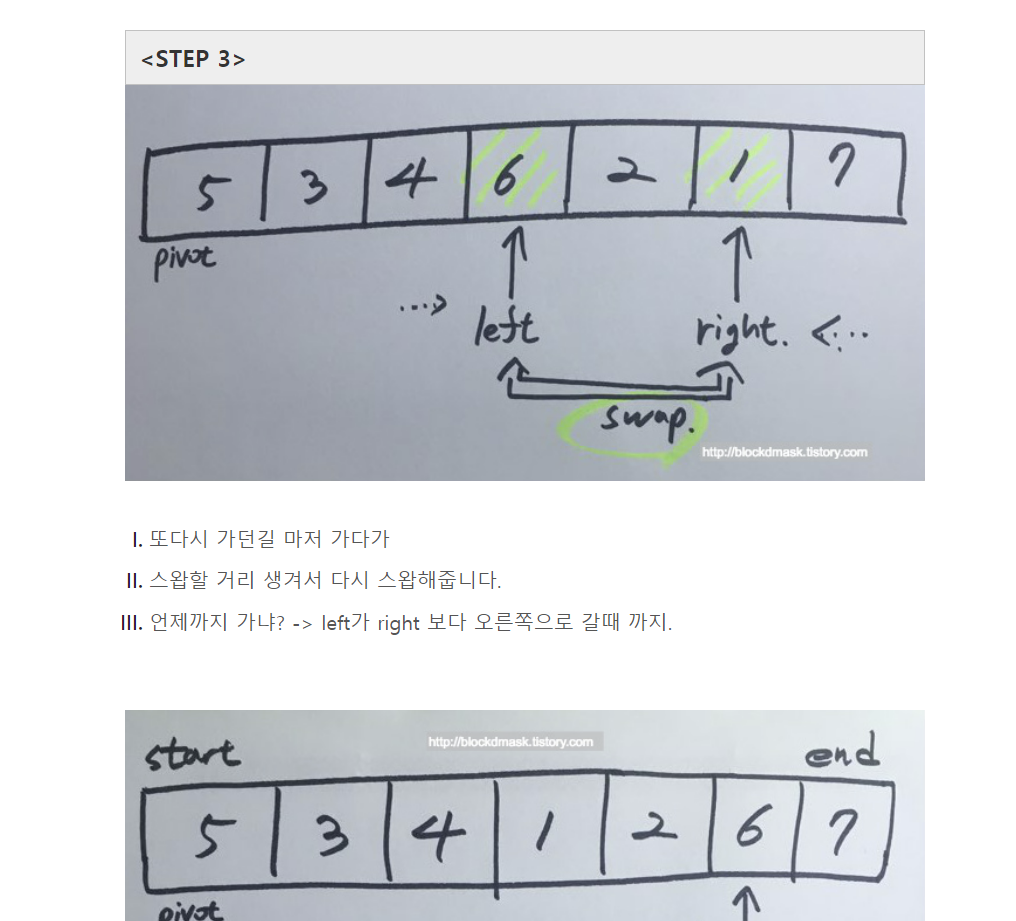 <STEP 3>
5 3 4 6 2 1 7
pivot
left right.
swap.
http://blockdmask.tistory.com
I. 또다시 가던길 마저 가다가
II. 스왑할 거리 생겨서 다시 스왑해줍니다.
III. 언제까지 가냐? -> left가 right 보다 오른쪽으로 갈때 까지.
http://blockdmask.tistory.com
start end
5 3 4 1 2 6 7
pivot